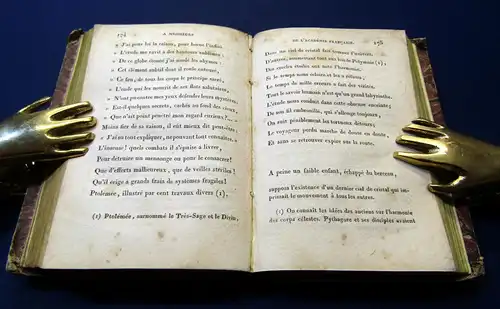 174 A MESSIEURS
» J'ai pour loi la raison, pour bornes l'infini.
» L'étude me ravit à des hauteurs sublimes :
» De ce globe étonné j'ai sondé les abymes :
» Cet élément subtil dont se nourrit
» Ce feu, de tous les corps le principe sacré,
» L'onde qui les nourrit de ses flots salutaires,
» N'ont pu à mes yeux défendre leurs mystères.
» Est-il quelques secrets, cachés au fond des cieux,
» Que n'ait point pénétré mon regard curieux ?
» J'ai su tout expliquer, ne pouvant tout connaître. »
Moins fier de sa raison, il eût mieux dit peut-être
L'homme ! quels combats il s'apaise à livrer,
Pour détruire un mensonge ou pour le consacrer !
Que d'efforts malheureux, que de veilles stériles !
Qu'il érige à grands frais de systèmes fragiles !
Ptolémée, illustré par cent travaux divers (1),
(1) Ptolémée, surnommé le Très-Sage et le Divin.
DE L'ACADÉMIE FRANÇAISE. 175
Dans un ciel de cristal fait tourner l'univers.
D'autres, soumettant tout aux lois de Polymnie (1),
Des cercles étoilés ont noté l'harmonie.
Si le temps nous éclaire, et les a détruits
Le temps de mille erreurs a fait des vérités.
Tout le savoir humain n'est qu'un grand labyrinthe.
L'étude nous conduit dans cette obscure enceinte ;
De son fil embrouillé, qui s'allonge toujours,
On suit péniblement les tortueux détours ;
Le voyageur perdu marche de doute en doute,
Et sans se retrouver expire sur la route.
A peine un faible enfant, échappé du berceau,
suppose l'existence d'un dernier ciel de cristal qui imprimait le mouvement à tous les autres.
(1) On connaît les idées des anciens sur l'harmonie
des corps célestes. Pythagore et ses disciples avaient